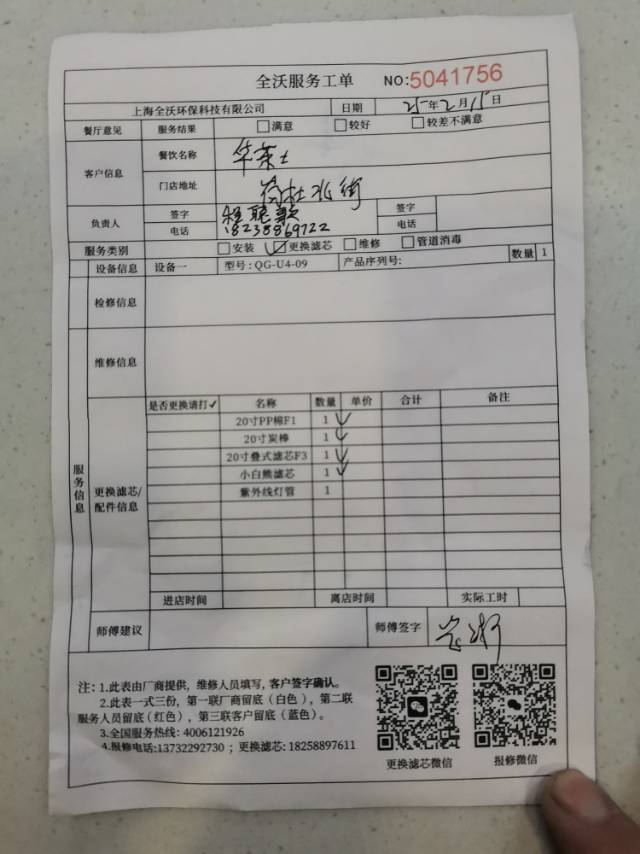 全沃服务工单 NO:5041756
上海全沃环保科技有限公司 日期 25年2月15日
餐厅意见 服务结果 满意 较好 较差不满意
客户信息 餐饮名称 华莱士
门店地址 水街
负责人 签字 签字
电话 18238869722 电话
服务类别 安装 更换滤芯 维修 管道消毒
设备信息 设备一 型号:QG-U4-09 产品序列号: 数量 1
检修信息
维修信息
服务信息
更换滤芯/配件信息
是否更换请打✓ 名称 数量 单价 合计 备注
20寸PP棉F1 1 ✓
20寸炭棒 1 ✓
20寸叠式滤芯F3 1 ✓
小白熊滤芯 1 ✓
紫外线灯管 1
进店时间 离店时间 实际工时
师傅建议 师傅签字
注：1.此表由厂商提供，维修人员填写，客户签字确认。
2.此表一式三份，第一联厂商留底（白色），第二联
服务人员留底（红色），第三联客户留底（蓝色）。
3.全国服务热线：4006121926
4.报修电话:13732292730；更换滤芯：18258897611
更换滤芯微信 报修微信